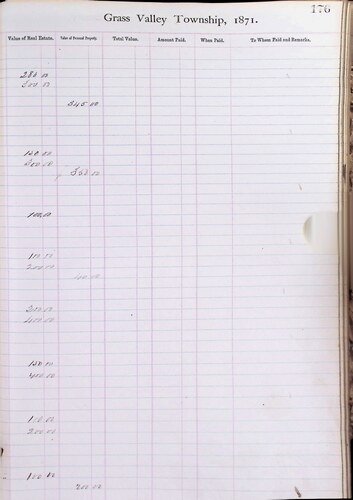 176
Grass Valley Township, 1871.
Value of Real Estate. Value of Personal Property. Total Value. Amount Paid. When Paid. To Whom Paid and Remarks.
280 00
300 00
345 00
120 00
300 00
363 00
100 00
100 00
200 00
40 00
200 00
400 00
150 00
400 00
100 00
200 00
100 00
200 00